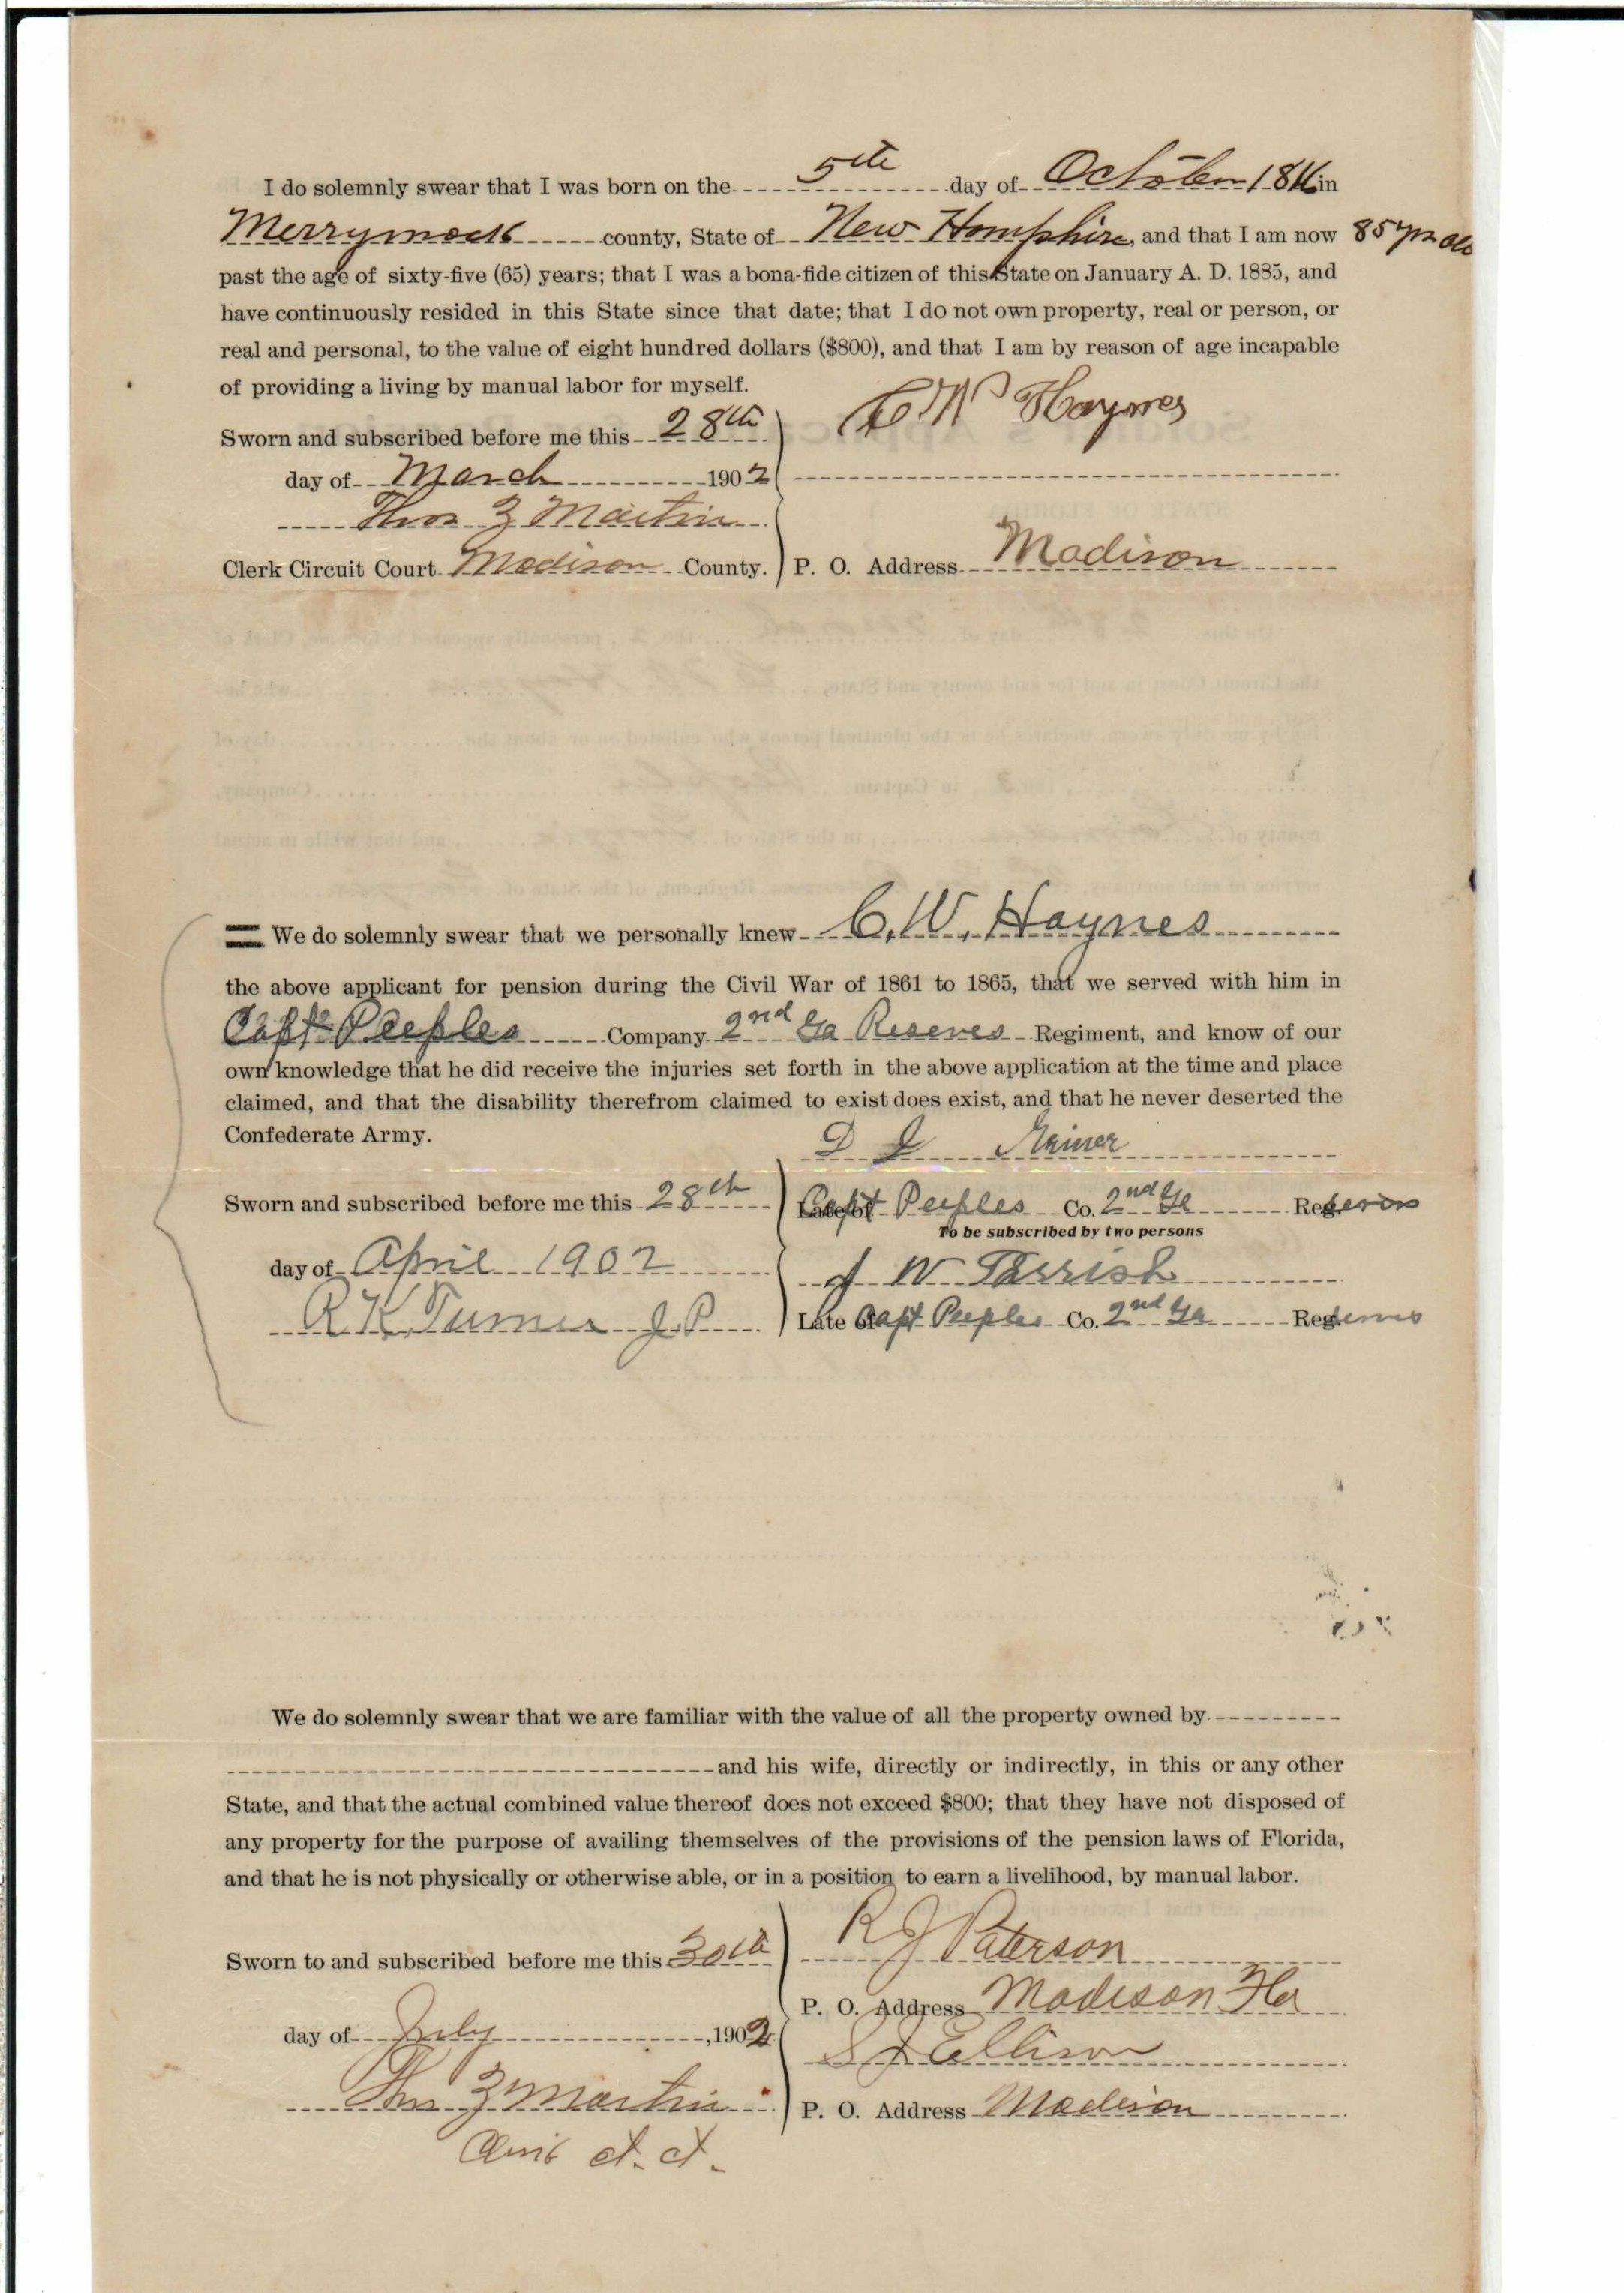 I do solemnly swear that I was born on the 5th day of October 1816 in
Merrymack county, State of New Hampshire, and that I am now 85 yrs old
past the age of sixty-five (65) years; that I was a bona-fide citizen of this State on January A. D. 1885, and
have continuously resided in this State since that date; that I do not own property, real or person, or
real and personal, to the value of eight hundred dollars ($800), and that I am by reason of age incapable
of providing a living by manual labor for myself.
C W Haynes
Sworn and subscribed before me this 28th
day of March 1902
Thos Z Martin
Clerk Circuit Court Madison County. P. O. Address Madison
We do solemnly swear that we personally knew C. W. Haynes
the above applicant for pension during the Civil War of 1861 to 1865, that we served with him in
Capt Peeples Company 2nd Ga Reserves Regiment, and know of our
own knowledge that he did receive the injuries set forth in the above application at the time and place
claimed, and that the disability therefrom claimed to exist does exist, and that he never deserted the
Confederate Army.
D J Griner
Sworn and subscribed before me this 28th Late of Capt Peeples Co. 2nd Ga Reserves
To be subscribed by two persons
day of April 1902 J W Parrish
R K Turner J. P. Late of Capt Peeples Co. 2nd Ga Reserves
We do solemnly swear that we are familiar with the value of all the property owned by
and his wife, directly or indirectly, in this or any other
State, and that the actual combined value thereof does not exceed $800; that they have not disposed of
any property for the purpose of availing themselves of the provisions of the pension laws of Florida,
and that he is not physically or otherwise able, or in a position to earn a livelihood, by manual labor.
R J Paterson
Sworn to and subscribed before me this 30th
P. O. Address Madison Fla
day of July, 1902
S J Ellison
Thos Z Martin P. O. Address Madison
Clerk Ct. Ct.